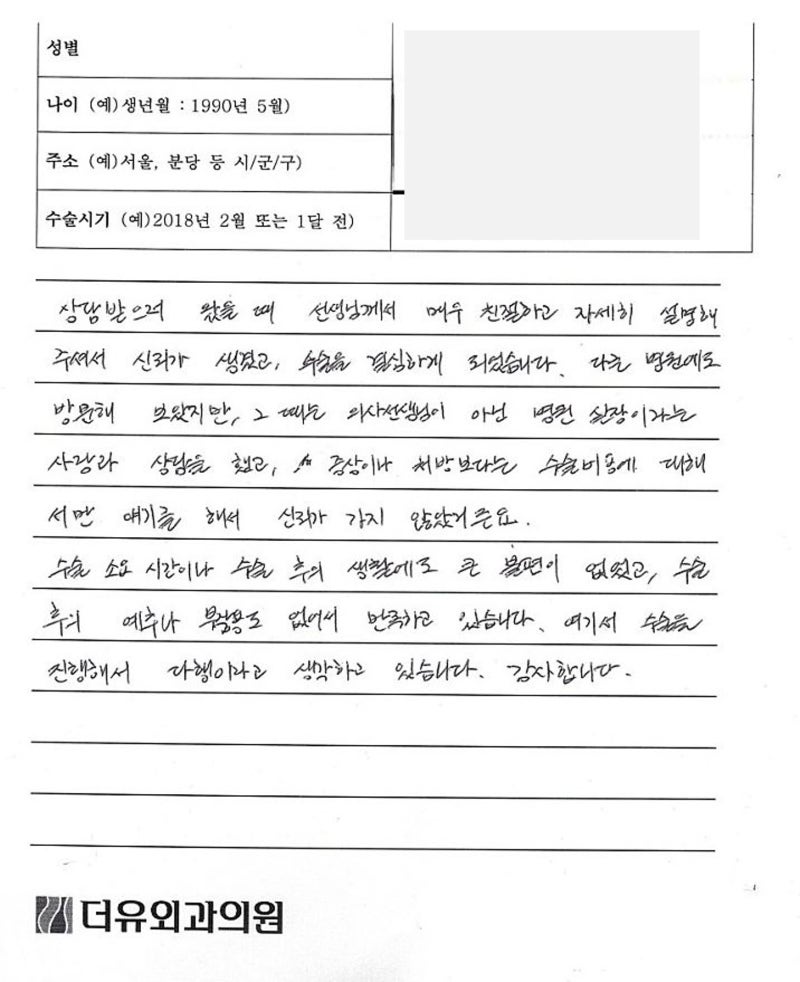 성별
나이 (예)생년월 : 1990년 5월)
주소 (예)서울, 분당 등 시/군/구)
수술시기 (예)2018년 2월 또는 1달 전)
상담받으러 왔을 때 선생님께서 매우 친절하고 자세히 설명해
주셔서 신뢰가 생겼고, 수술을 결심하게 되었습니다. 다른 병원에도
방문해 보았지만, 그 때는 의사선생님이 아닌 병원 실장이라는
사람과 상담을 했고, 증상이나 처방보다는 수술비용에 대해
서만 얘기를 해서 신뢰가 가지 않았거든요.
수술 소요 시간이나 수술 후의 생활에도 큰 불편이 없었고, 수술
후의 예후나 부작용도 없어서 만족하고 있습니다. 여기서 수술을
진행해서 다행이라고 생각하고 있습니다. 감사합니다.
더유외과의원